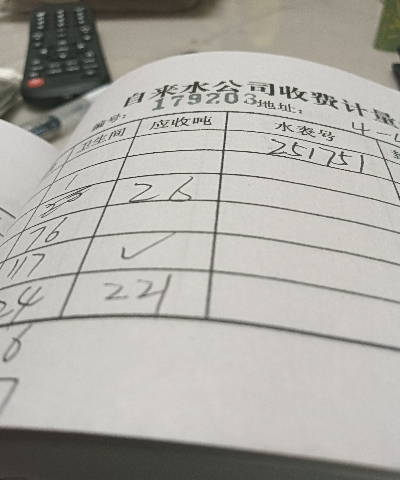 自来水公司收费计量
编号: 179203 地址: 4-
卫生间 应收吨 水表号
251751
26
176
117 ✓
24 221
6
7